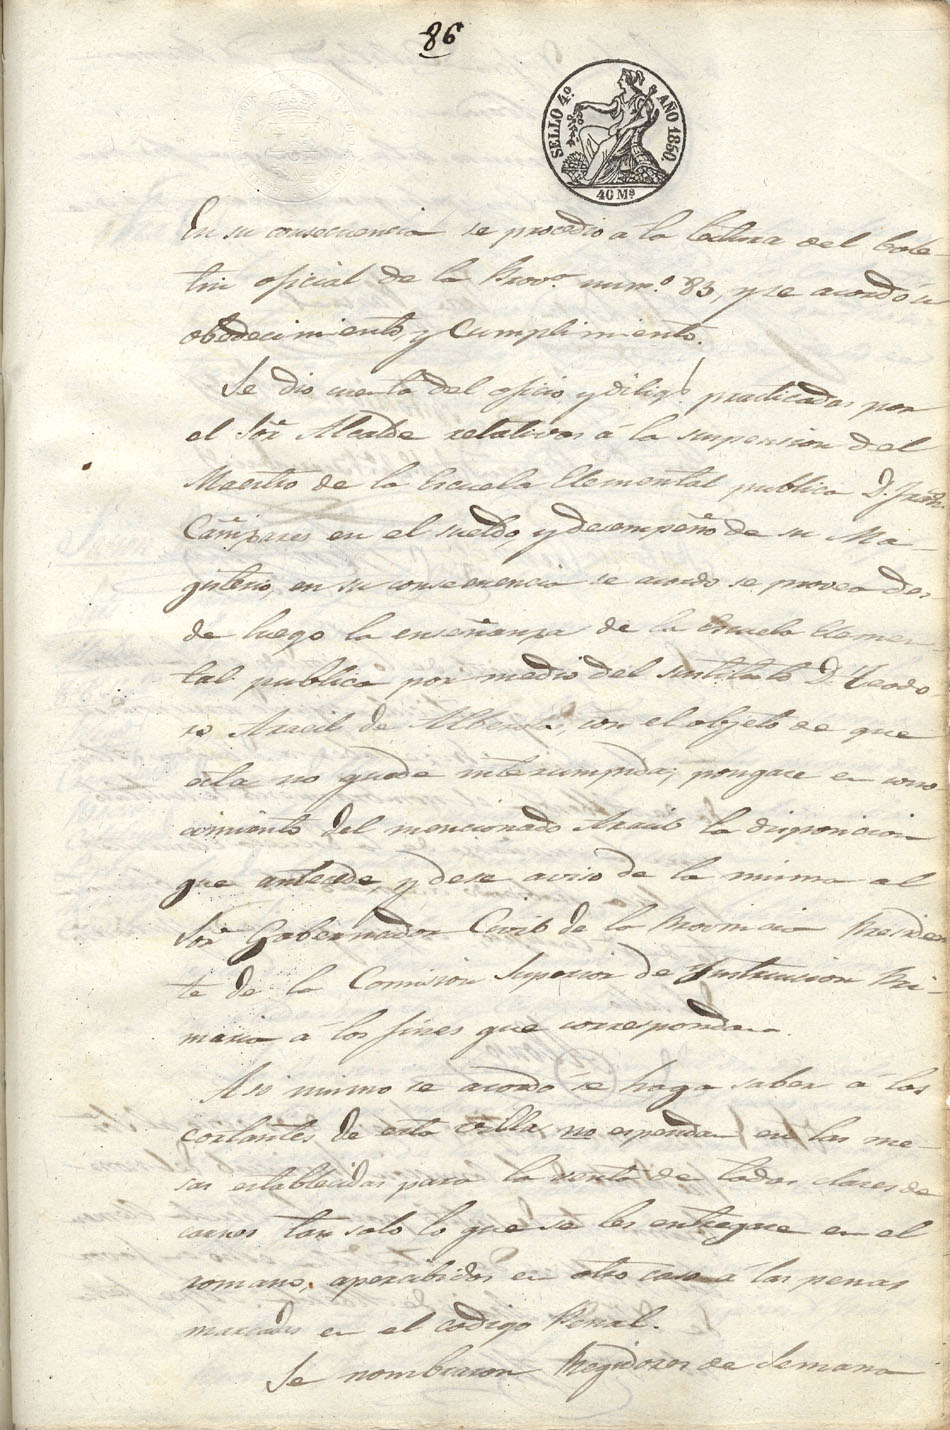 86
SELLO 4º. AÑO 1850.
40 Ms
En su consecuencia se procedio á la lectura del bole-
tin oficial de la Provª. numº. 83, y se acordó su
obedecimiento, y cumplimiento.
Se dio cuenta del oficio y diligs practicadas por
el Sor Alcalde relativas á la suspension del
Maestro de la Escuela Elemental publica D. Franco
Cañizares en el sueldo, y desempeño de su Ma-
gisterio, en su consecuencia se acordo se provea des
de luego la enseñanza de la Escuela Elemen-
tal publica por medio del sustituto D. Teodo
ro Aracil de , con el objeto de que
esta no quede interrumpida; pongase en cono
cimiento del mencionado Aracil la disposicion
que antecede, y dese aviso de la misma al
Sor Gobernador Civil de la Provincia Presiden
te de la Comision Superior de Instruccion Pri-
maria á los fines que correspondan.
Asi mismo se acordó se haga saber á los
cortantes de esta villa, no espendan en las me-
sas establecidas para la venta de todas clases de
carnes tan solo lo que se les entregare en el
romano, apercibidos en otro caso á las penas
marcadas en el codigo Penal.
Se nombraron Regidores de Semana